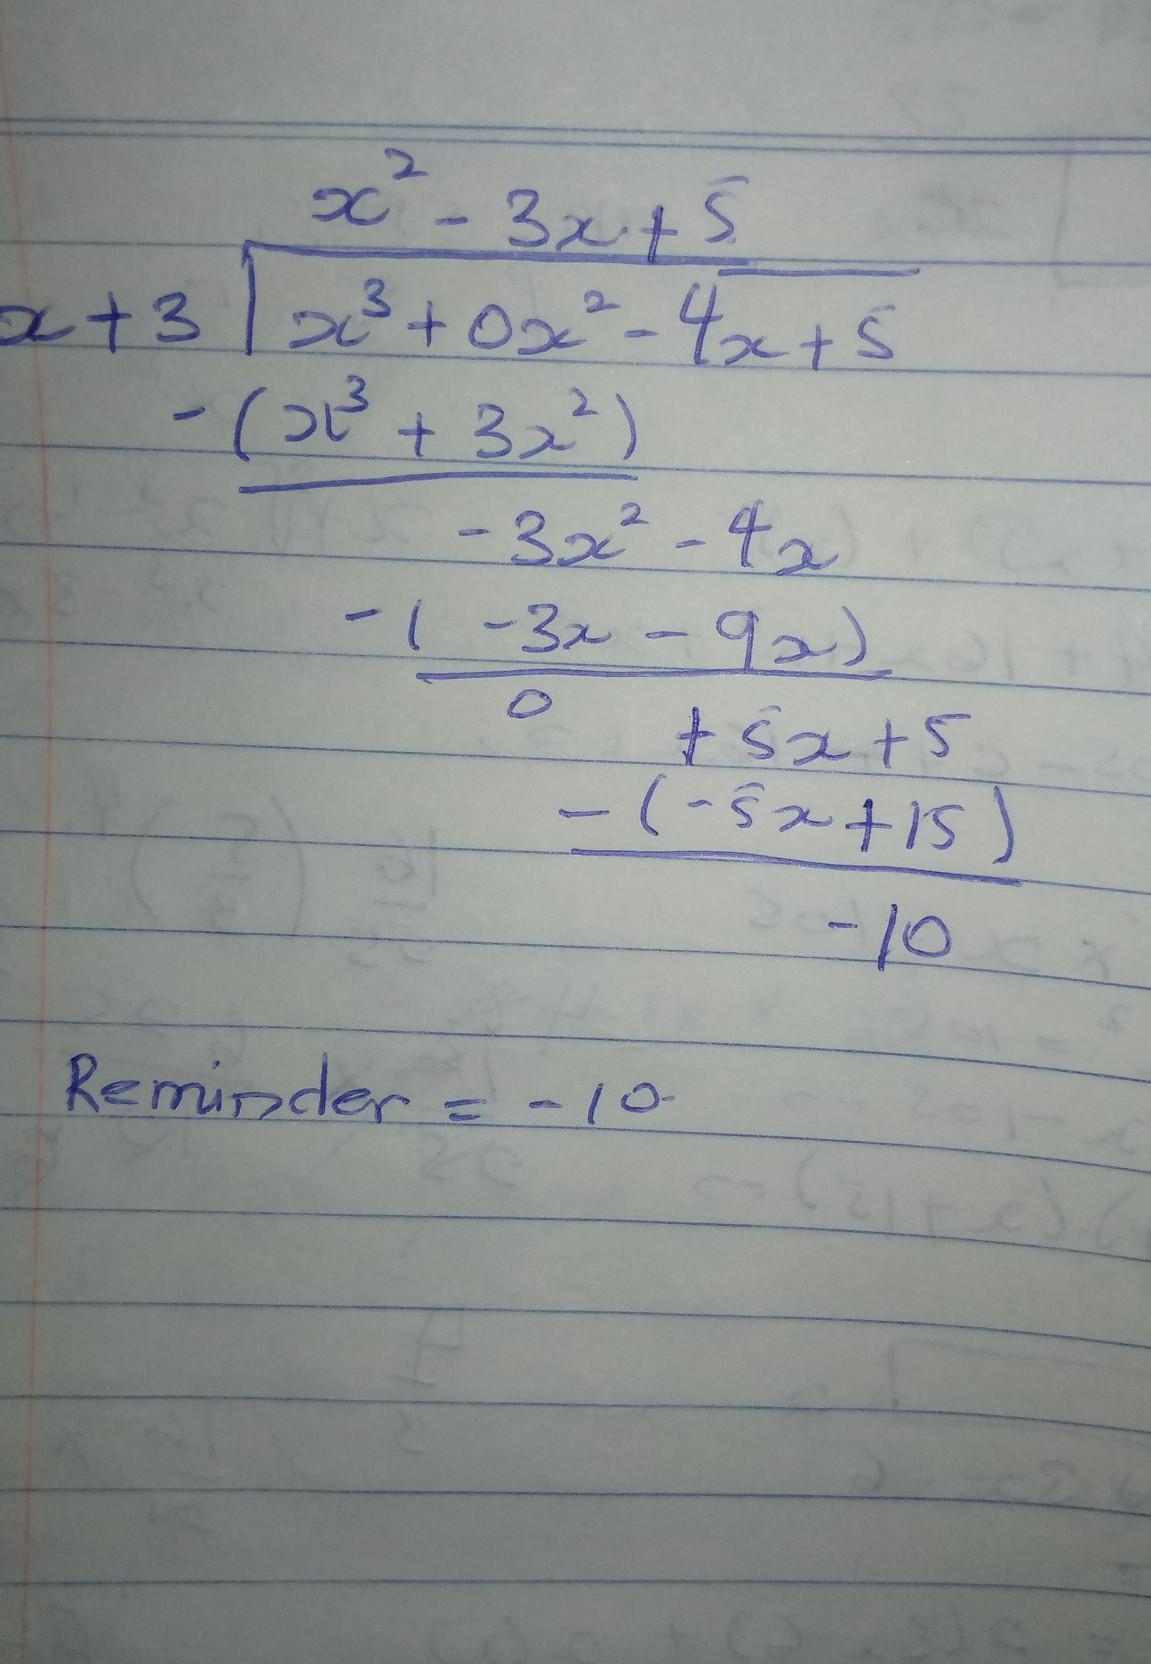 x² - 3x + 5
x + 3 | x³ + 0x² - 4x + 5
- (x³ + 3x²)
-3x² - 4x
- ( -3x - 9x)
0 + 5x + 5
- (-5x + 15)
-10
Reminder = -10